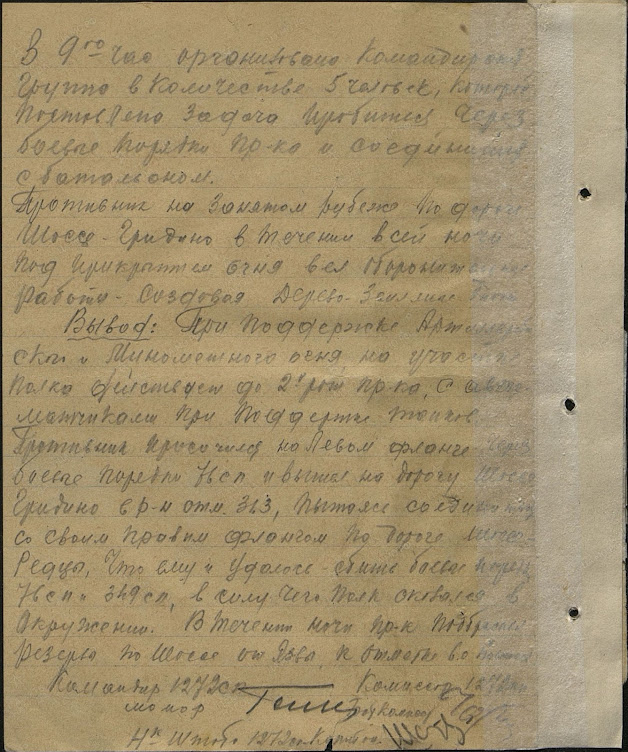 В 9го час организовано Командиром
группа в Количестве 5 человек, которой
поставлена задача пробится через
боевые порядки пр-ка и соединится
с батальоном.
Противник на занятом рубеже по дороги
Шоссе-Гридино в течении всей ночи
под прикрытием огня вел оборонительные
работы - создовая Дерево-Земляные
Вывод: При поддержке Артиллерий-
ской и Минометного огня, на участке
полка действует до 2х рот пр-ка, с
матчиками при поддержке танков.
Противник просочился на левом фланге через
боевые порядки 7 всп и вышел на дорогу Шоссе
Гридино в р-н отм. 313, пытаясь соединится
со своим правым флангом по дороге Шоссе-
Редцы, Что ему и удалось - сбить боевые поряд
7 всп и 349 сп, в силу чего полк оказался в
Окружении. В течении ночи пр-к
резервы по Шоссе от Язвы, к отметке
Командир 1272сп Комиссар 1272сп
майор
Н-к Штаба 1272сп Капитан